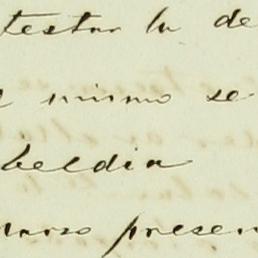 testar la de
mismo se
beldia
marzo presen